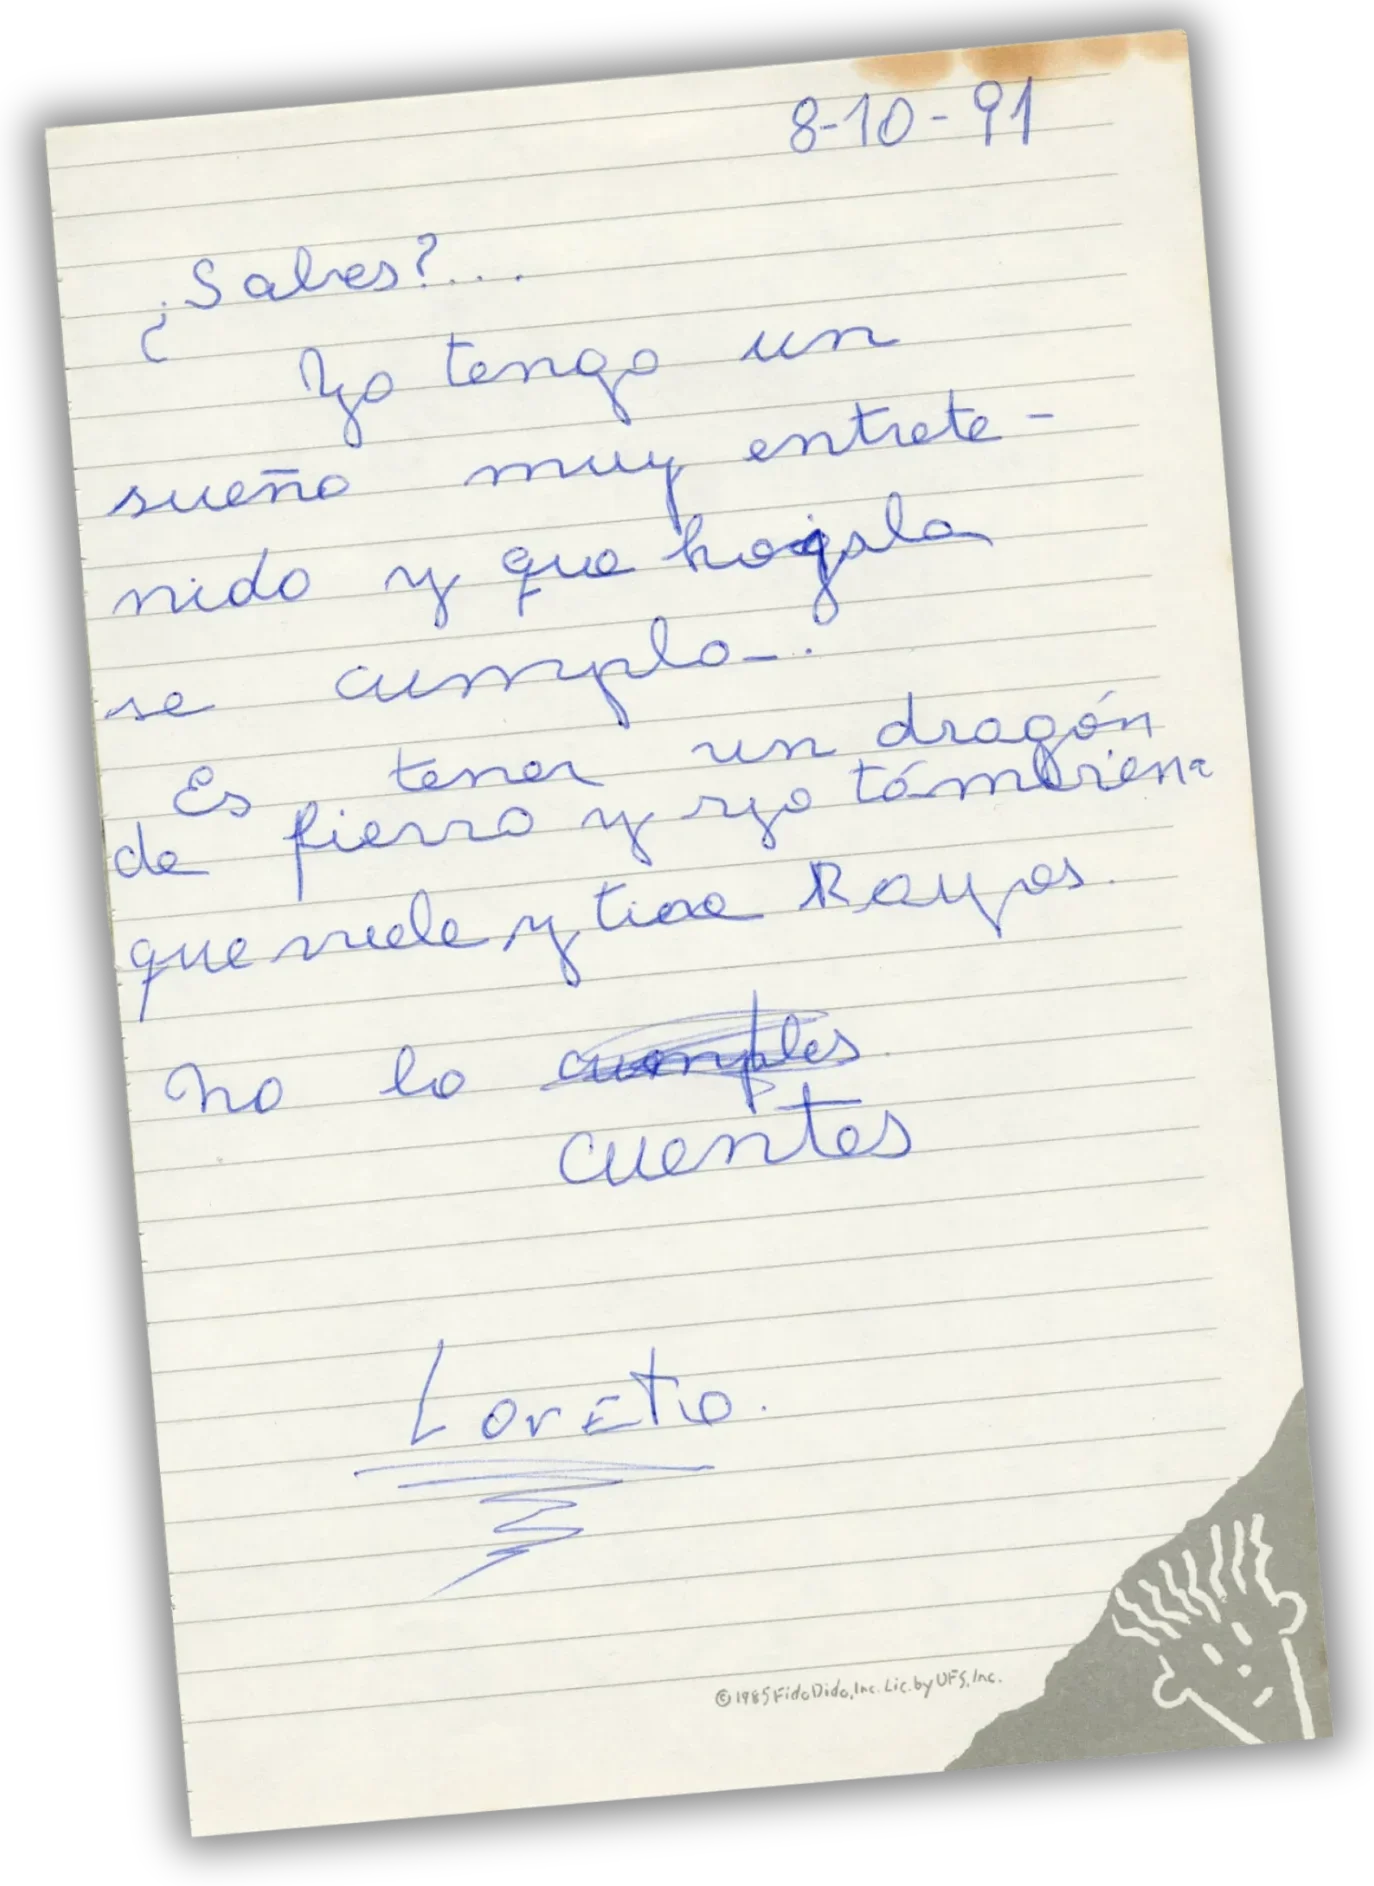 8-10-91
¿Sabes?...
Yo tengo un
sueño muy entrete-
nido y que hojala
se cumpla...
Es tener un dragón
de fierro y yo támbien
que vuele y tire Rayos.
No lo cumples
cuentes
Loreto.
©1985 Fido Dido, Inc. Lic. by UFS, Inc.